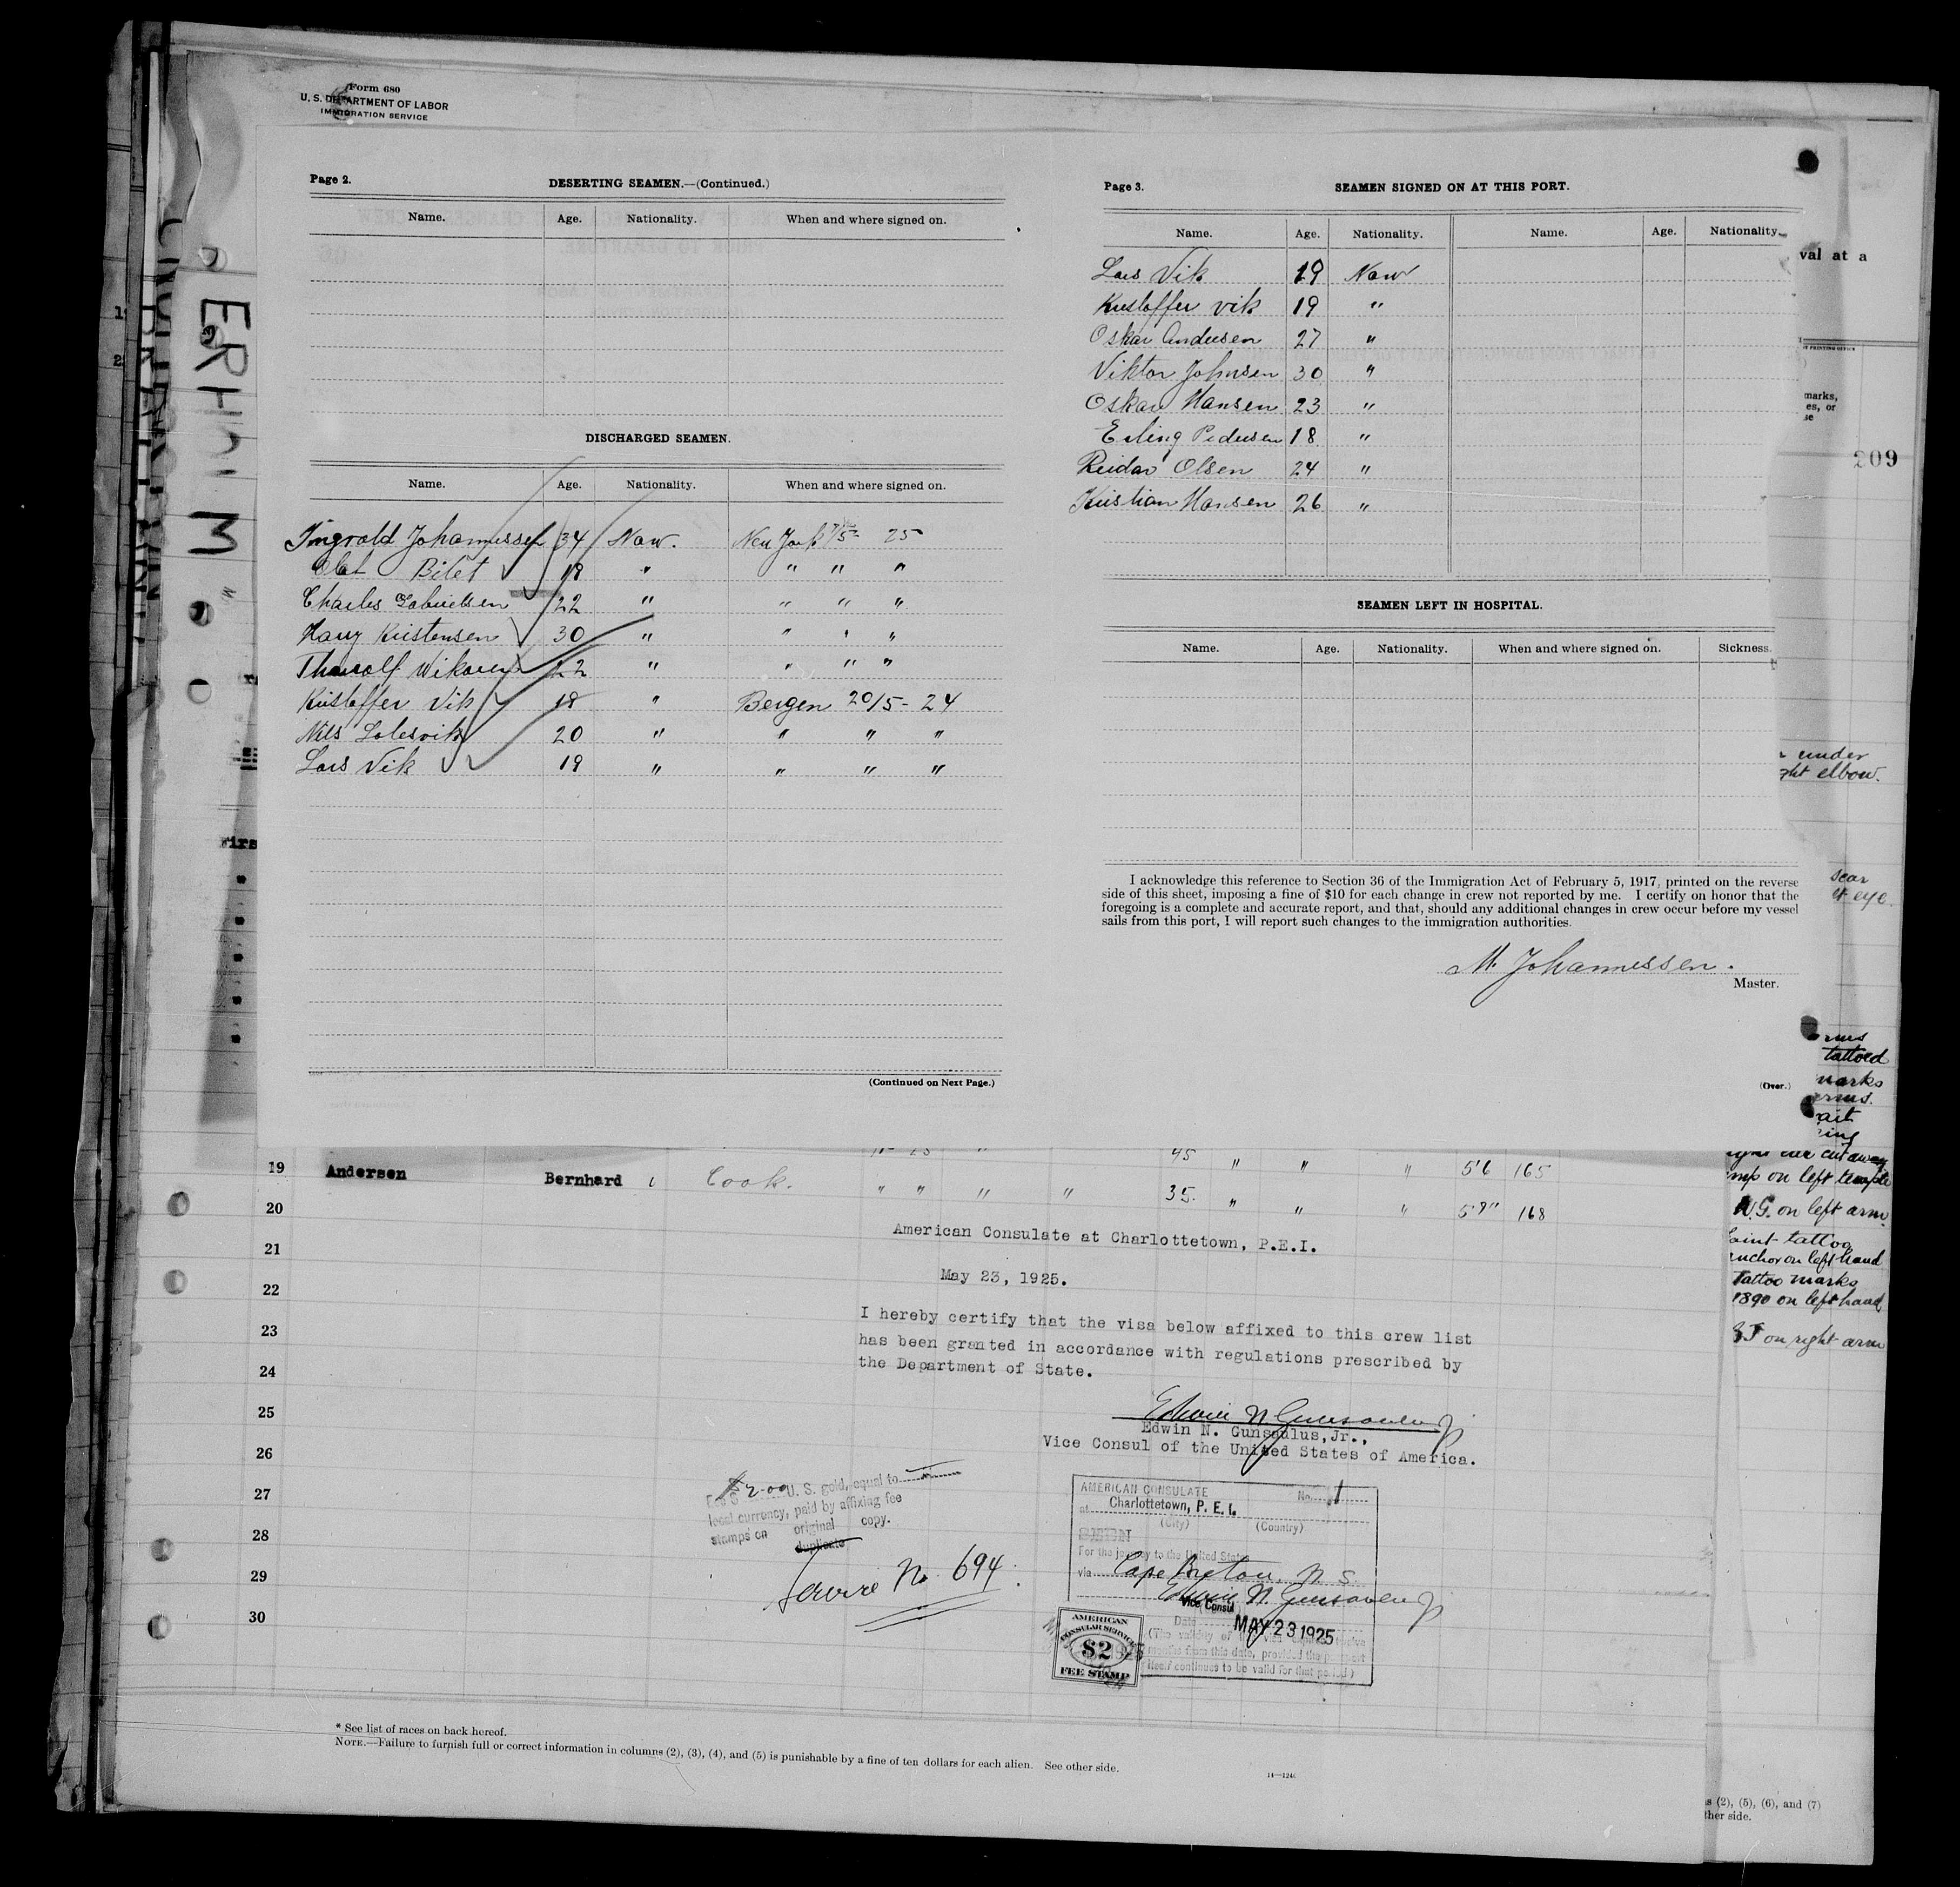 Form 680
U. S. DEPARTMENT OF LABOR
IMMIGRATION SERVICE
Page 2.
DESERTING SEAMEN.—(Continued.)
Name. Age. Nationality. When and where signed on.
DISCHARGED SEAMEN.
Name. Age. Nationality. When and where signed on.
Johannessen 34 Now. New York 25
Bilet 18 " " " "
Charles 22 " " " "
Harry Kristensen 30 " " " "
22 " " " "
Kristoffer Vik 18 " Bergen 20/5 - 24
Nils 20 " " " "
Lars Vik 19 " " " "
(Continued on Next Page.)
Page 3.
SEAMEN SIGNED ON AT THIS PORT.
Name. Age. Nationality. Name. Age. Nationality.
Lars Vik 19 Now
Kristoffer Vik 19 "
Oskar Andersen 27 "
Viktor Johnsen 30 "
Oskar Hansen 23 "
Erling Pedersen 18 "
Reidar Olsen 24 "
Kristian Hansen 26 "
SEAMEN LEFT IN HOSPITAL.
Name. Age. Nationality. When and where signed on. Sickness.
I acknowledge this reference to Section 36 of the Immigration Act of February 5, 1917, printed on the reverse
side of this sheet, imposing a fine of $10 for each change in crew not reported by me. I certify on honor that the
foregoing is a complete and accurate report, and that, should any additional changes in crew occur before my vessel
sails from this port, I will report such changes to the immigration authorities.
M. Johannessen.
Master.
(Over.)
val at a
marks,
es, or
209
under
ght elbow.
scar
eye.
arms
tattoed
marks
arms.
cut away
on left temple
W.G. on left arm
tattoo
anchor on left hand
Tattoo marks
1890 on left hand
on right arm
45 " " " 5'6 165
19 Andersen Bernhard Cook. " " " " 35. " " " 5'7" 168
20
American Consulate at Charlottetown, P.E.I.
21
May 23, 1925.
22
I hereby certify that the visa below affixed to this crew list
23
has been granted in accordance with regulations prescribed by
the Department of State.
24
25
Edwin N. Gunsaulus, Jr.
Edwin N. Gunsaulus,Jr.,
26
Vice Consul of the United States of America.
27
28
29
30
Fee $ 2.00 U. S. gold, equal to
local currency, paid by affixing fee
stamps on original copy.
duplicate
Service No. 694.
AMERICAN CONSULATE No. 1
at Charlottetown, P. E. I.
(City) (Country)
SEEN
For the journey to the United States
via Cape Breton, N. S.
Edwin N. Gunsaulus Jr
Vice Consul
Date MAY 23 1925
(The validity of this visa expires twelve
months from this date, provided the passport
itself continues to be valid for that period)
AMERICAN
CONSULAR SERVICE
$2
FEE STAMP
* See list of races on back hereof.
NOTE.—Failure to furnish full or correct information in columns (2), (3), (4), and (5) is punishable by a fine of ten dollars for each alien. See other side.
14—1240
(2), (5), (6), and (7)
ther side.